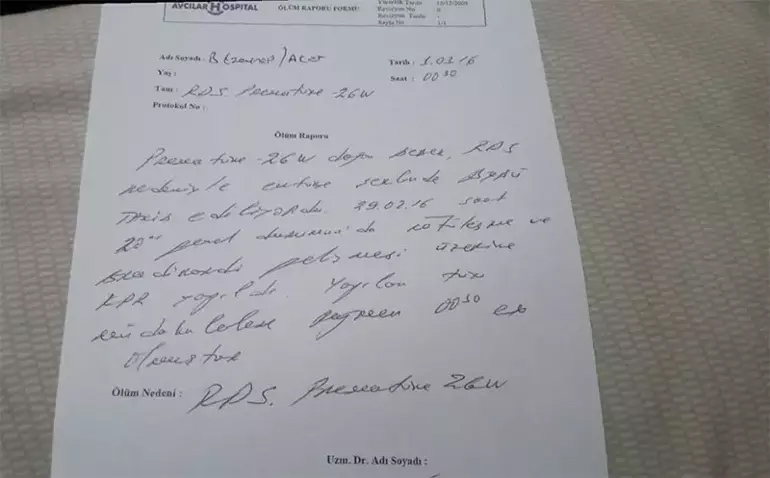 AVCILAR HOSPITAL
ÖLÜM RAPORU FORMU
Yürürlük Tarihi
Revizyon No 0
Revizyon Tarihi -
Sayfa No 1/1
Adı Soyadı : B
Tarih : 1.03.16
Yaş :
Saat : 00 30
Tanı : RDS Premature -26W
Protokol No :
Ölüm Raporu
Premature -26W doğan bebek, RDS
nedeniyle entübe şekilde
takip ediliyordu. 29.02.16 saat
genel durumunda kötüleşme ve
bradikardi gelişmesi üzerine
KPR yapıldı. Yapılan tüm
müdahalelere rağmen 00 30 ex
olmuştur
Ölüm Nedeni : RDS. Premature 26W
Uzm. Dr. Adı Soyadı :